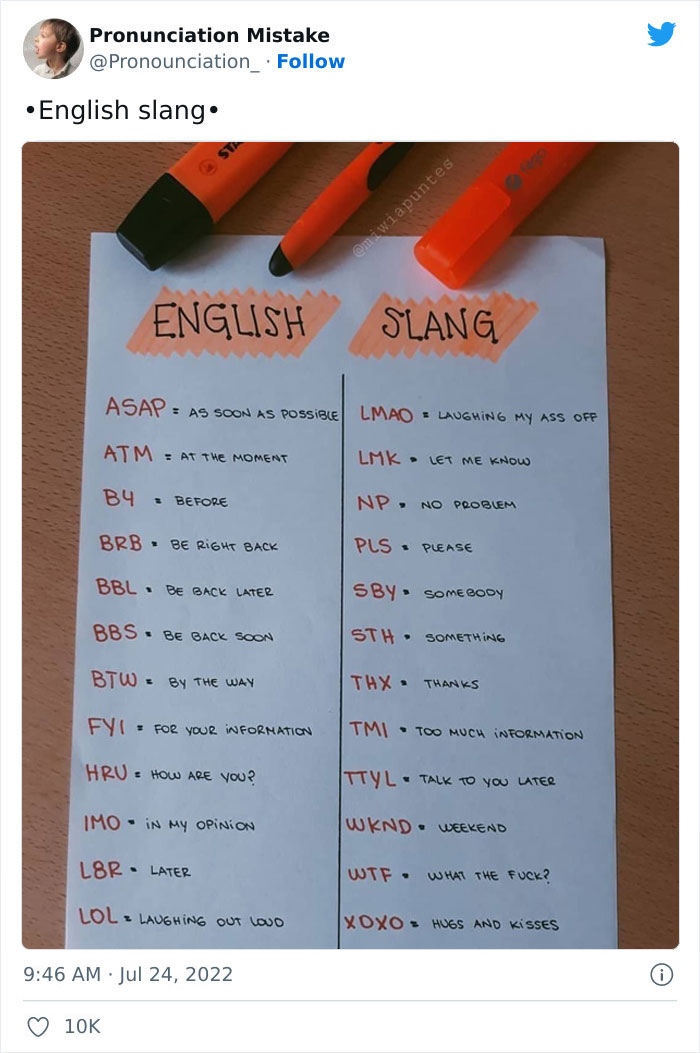 Pronunciation Mistake
@Pronounciation_ · Follow
•English slang•
@miwiapuntes
ENGLISH SLANG
ASAP = AS SOON AS POSSIBLE
ATM = AT THE MOMENT
B4 = BEFORE
BRB = BE RIGHT BACK
BBL = BE BACK LATER
BBS = BE BACK SOON
BTW = BY THE WAY
FYI = FOR YOUR INFORMATION
HRU = HOW ARE YOU?
IMO = IN MY OPINION
L8R = LATER
LOL = LAUGHING OUT LOUD
LMAO = LAUGHING MY ASS OFF
LMK = LET ME KNOW
NP = NO PROBLEM
PLS = PLEASE
SBY = SOMEBODY
STH = SOMETHING
THX = THANKS
TMI = TOO MUCH INFORMATION
TTYL = TALK TO YOU LATER
WKND = WEEKEND
WTF = WHAT THE FUCK?
XOXO = HUGS AND KISSES
9:46 AM · Jul 24, 2022
10K